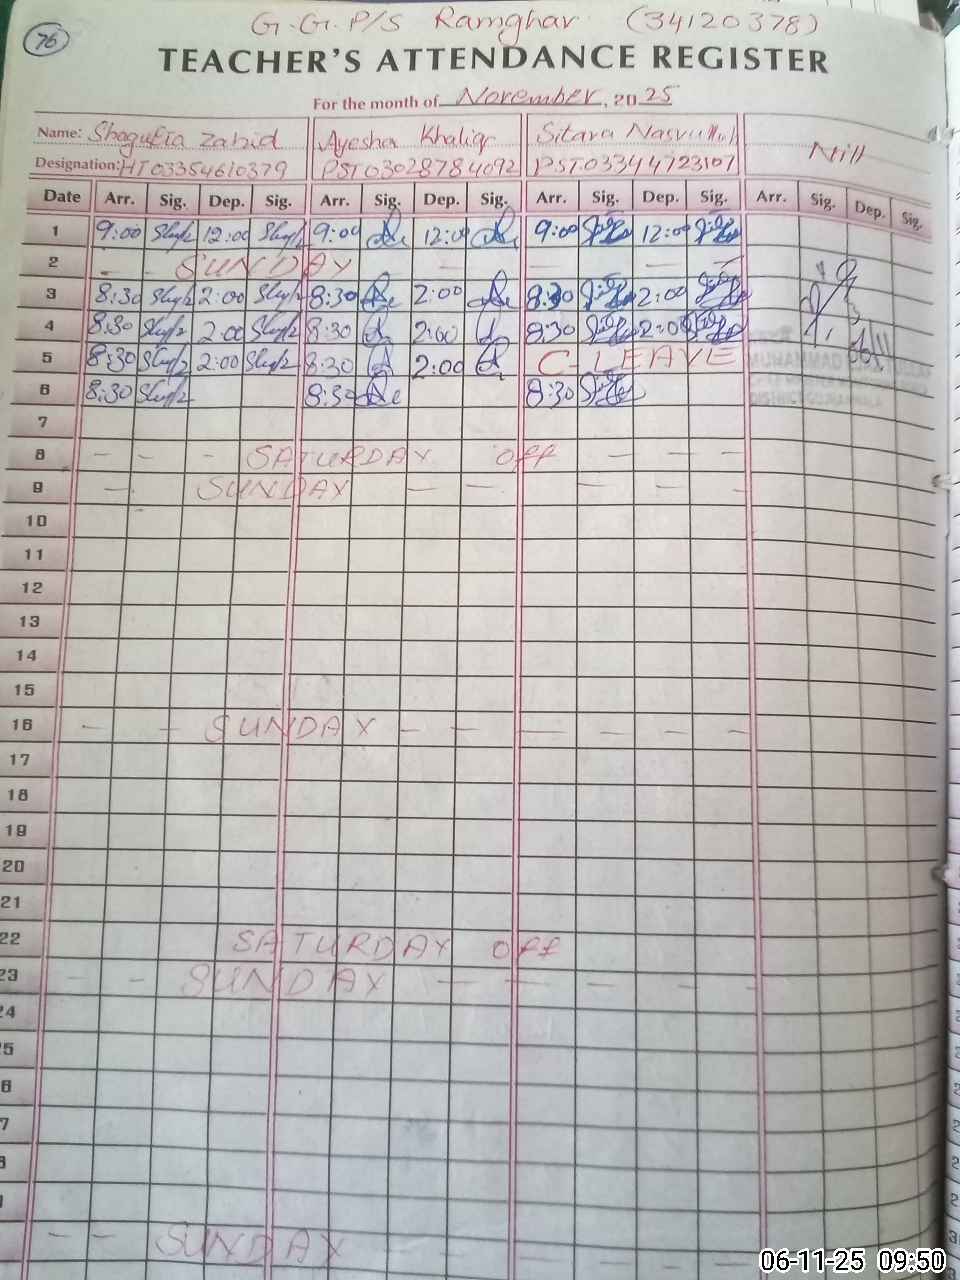 76
G.G.P/S Ramghar (34120378)
TEACHER'S ATTENDANCE REGISTER
For the month of November, 2025
Name: Shagufta Zahid Ayesha Khaliqr Sitara Nasrullah Nill
Designation: HT03354610379 PST03028784092 PST.03344723107
Date Arr. Sig. Dep. Sig. Arr. Sig. Dep. Sig. Arr. Sig. Dep. Sig. Arr. Sig. Dep. Sig.
1 9:00 12:00 9:00 12:00 9:00 12:00
2 SUNDAY
3 8:30 2:00 8:30 2:00 8:30 2:00
4 8:30 2:00 8:30 2:00 8:30 2:00
5 8:30 2:00 8:30 2:00 C-LEAVE
6 8:30 8:30 8:30
7
8 SATURDAY Off
9 SUNDAY
10
11
12
13
14
15
16 SUNDAY
17
18
19
20
21
22 SATURDAY Off
23 SUNDAY
24
5
6
7
SUNDAY
06-11-25 09:50